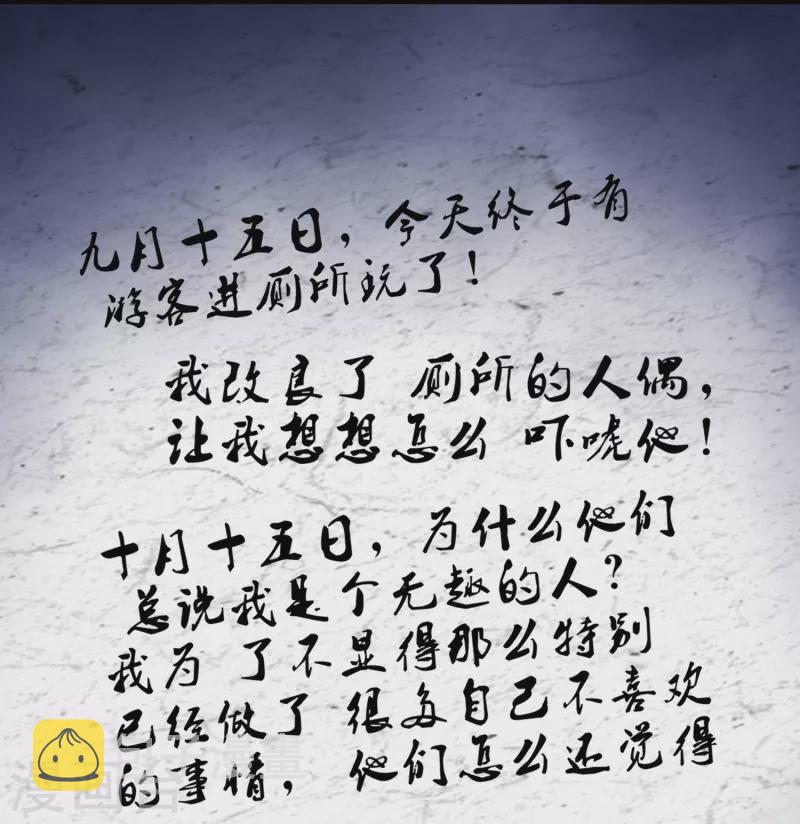 九月十五日，今天终于有
游客进厕所玩了！
我改良了 厕所的人偶，
让我想想怎么 吓唬他！
十月十五日，为什么他们
总说我是个无趣的人？
我为 了不显得那么特别
已经做了 很多自己不喜欢
的事情， 他们怎么还觉得